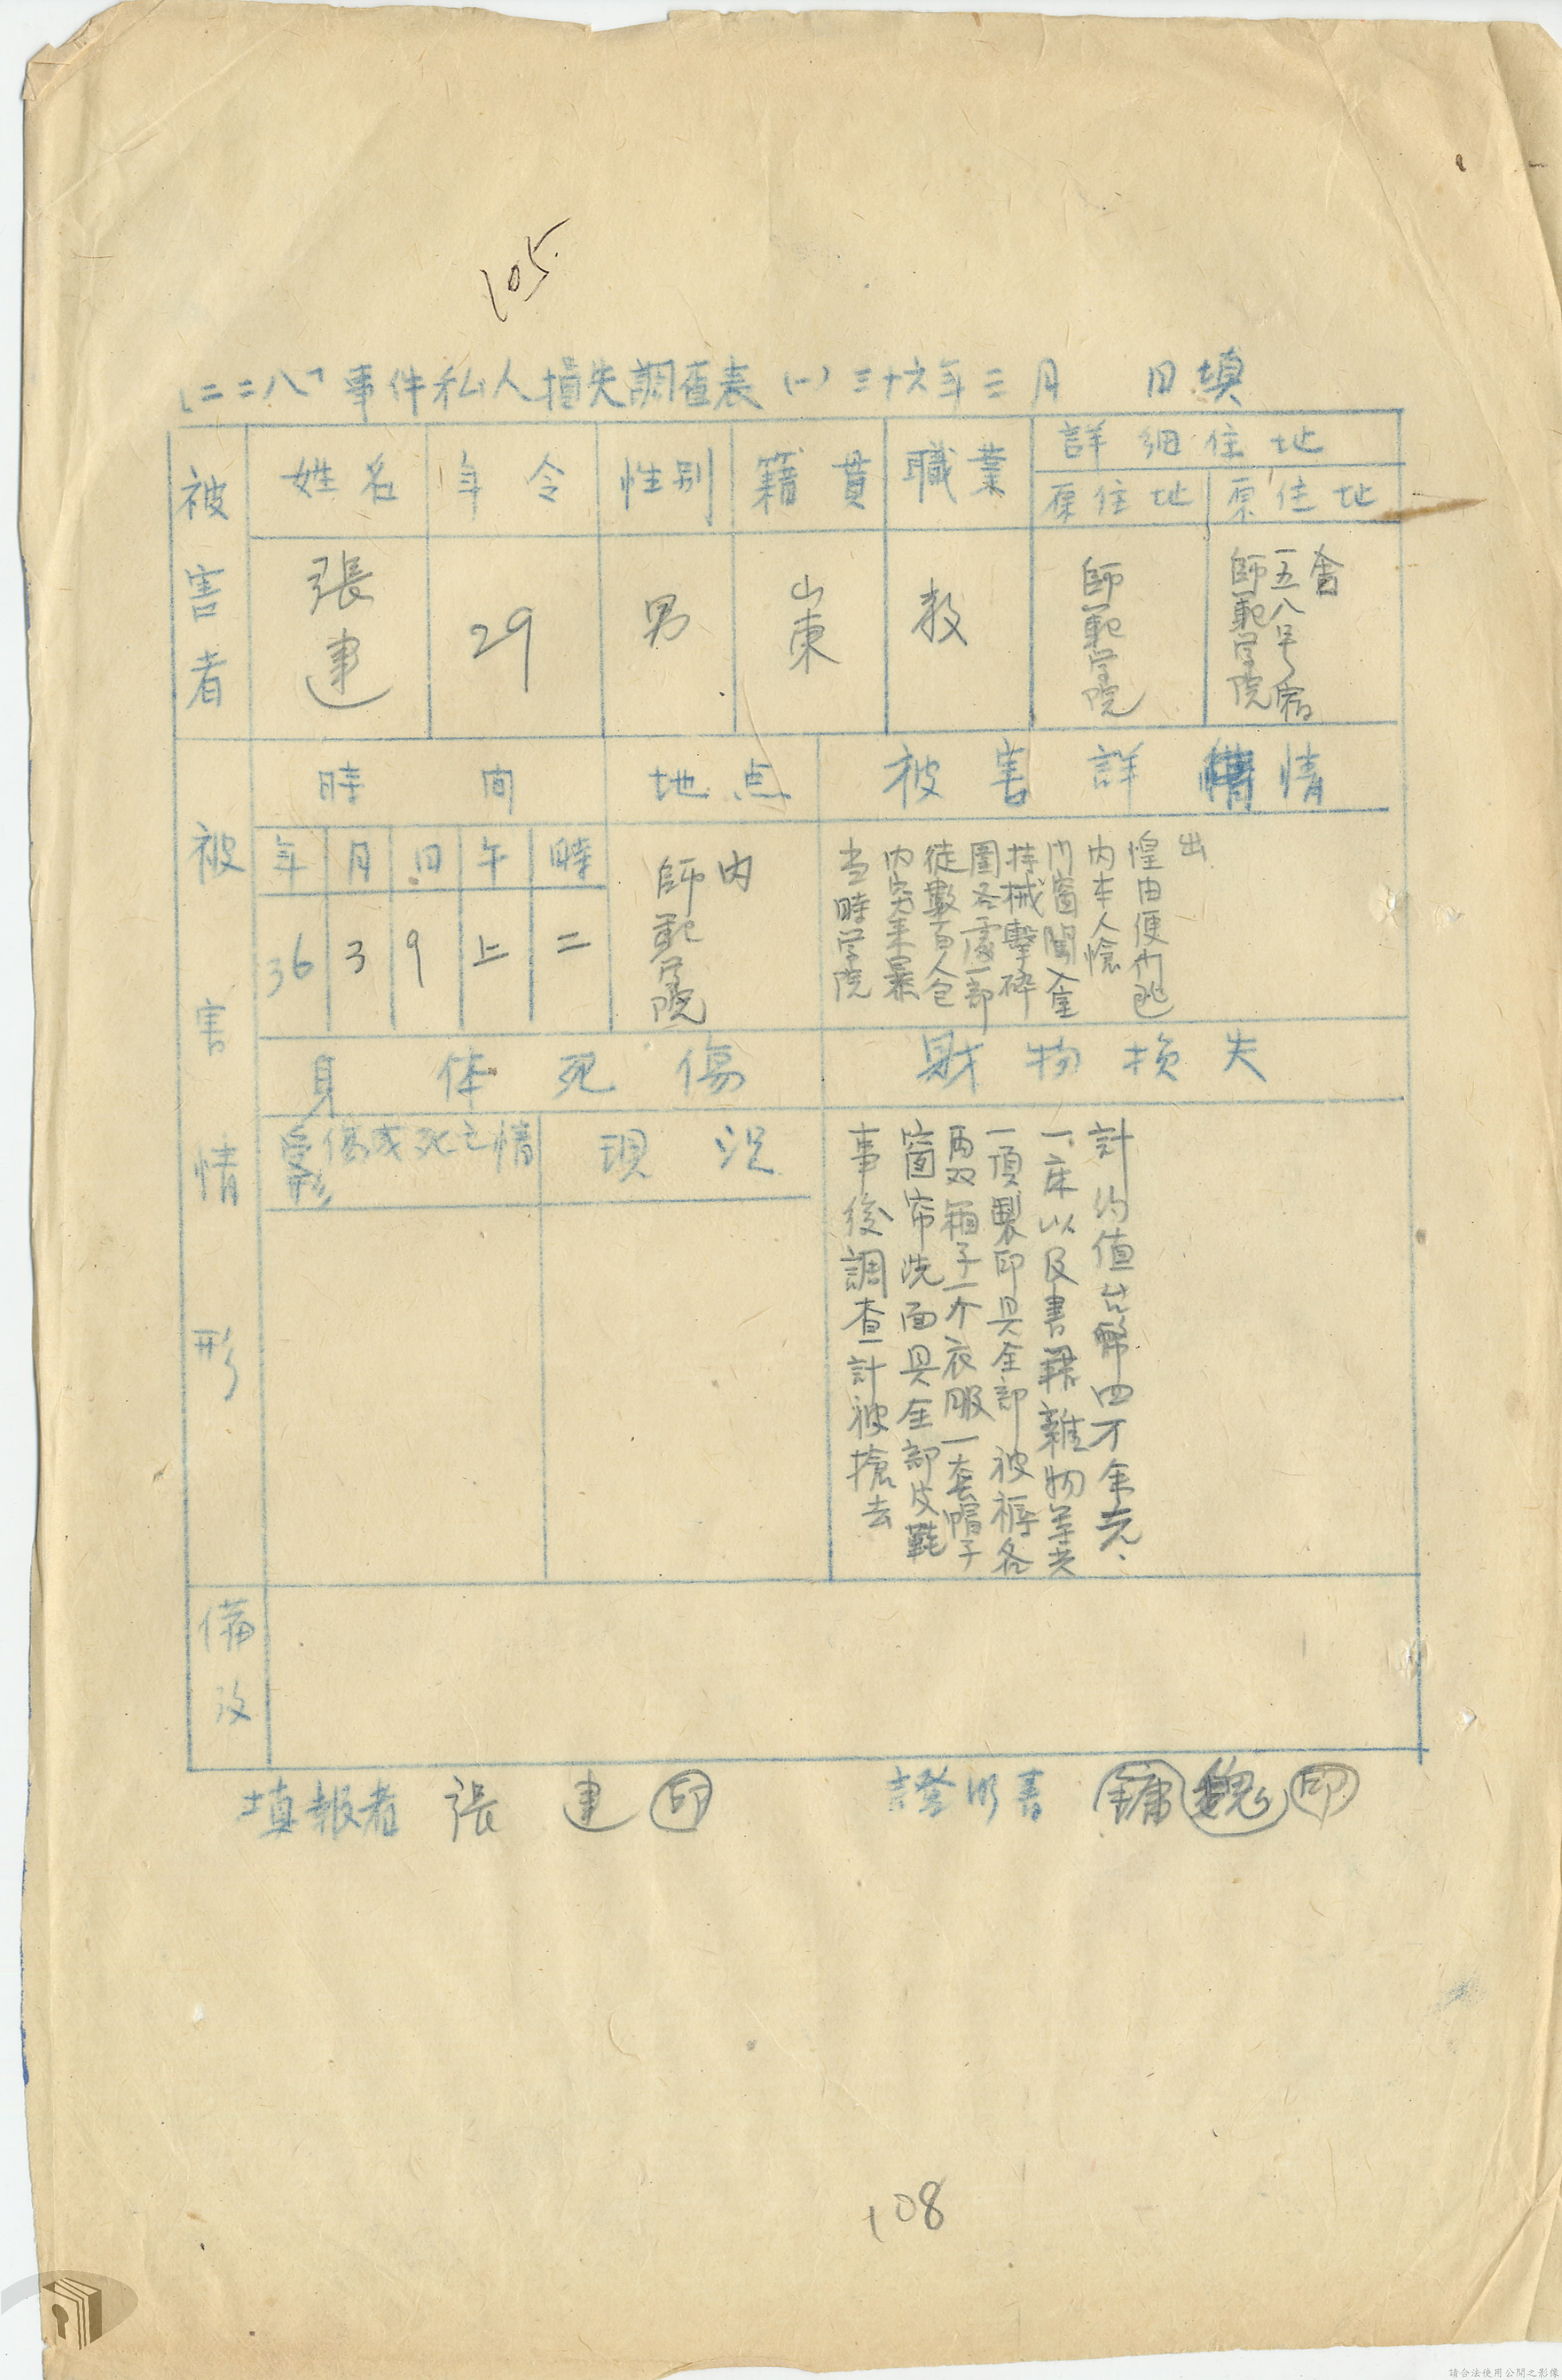 105
「二二八」事件私人損失調查表(一)三十六年三月 日填
被害者
姓名
年令
性别
籍貫
職業
詳細住地
原住地
原住地
張建
29
男
山東
教
師範学院
師範学院
一五八号宿
舍
被害情形
時間
地点
被害詳情
年
月
日
午
時
36
3
9
上
二
師範学院
内
当時学院
内突来暴
徒數百人包
圍各處一部
持械擊碎
门窗闖入室
内本人愴
惶由便门逃
出
身体死傷
財物損失
受傷或死之情形
現況
事後調查計被搶去
窗帘洗面具全部皮鞋
両双箱子一个衣服一套帽子
一頂製印具全部被褥各
一床以及書籍雜物等共
計約值台幣四万余元、
備攷
填報者 張建 印
證明書 鏞魏 印
108
請合法使用公開之影像